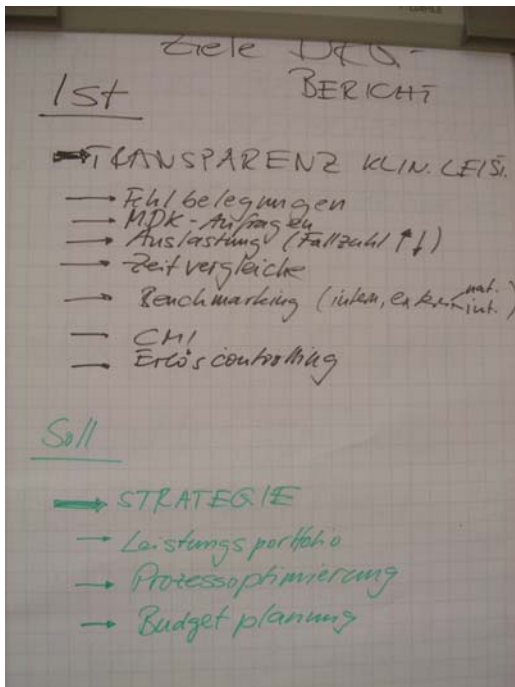 Ziele DRG-
BERICHT
Ist
→ TRANSPARENZ KLIN. LEIST.
→ Fehlbelegungen
→ MDK-Anfragen
→ Auslastung (Fallzahl ↑↓)
→ Zeitvergleiche
→ Benchmarking (intern, extern nat. int.)
→ CMI
→ Erlöscontrolling
Soll
→ STRATEGIE
→ Leistungsportfolio
→ Prozessoptimierung
→ Budgetplanung